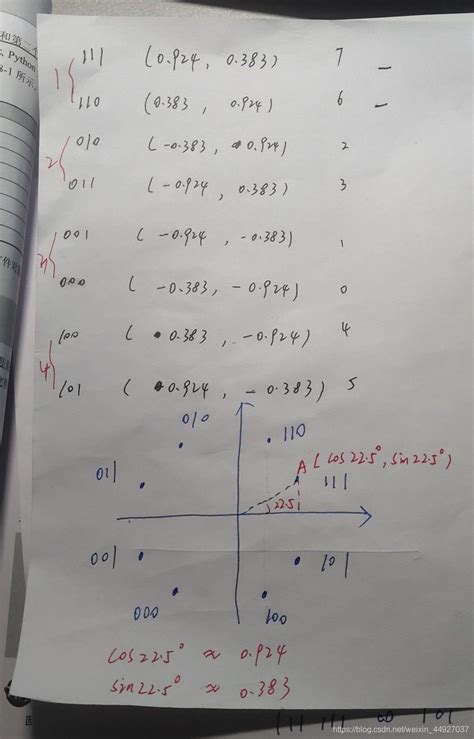 和第二个
Python
8-1 所示
1
111 (0.924, 0.383) 7 —
110 (0.383, 0.924) 6 —
2
010 (-0.383, 0.924) 2
011 (-0.924, 0.383) 3
3
001 (-0.924, -0.383) 1
000 (-0.383, -0.924) 0
4
100 (0.383, -0.924) 4
101 (0.924, -0.383) 5
010
110
A (cos22.5°, sin22.5°)
011
111
22.5
001
101
000
100
cos22.5° ≈ 0.924
sin22.5° ≈ 0.383
https://blog.csdn.net/weixin_44927037